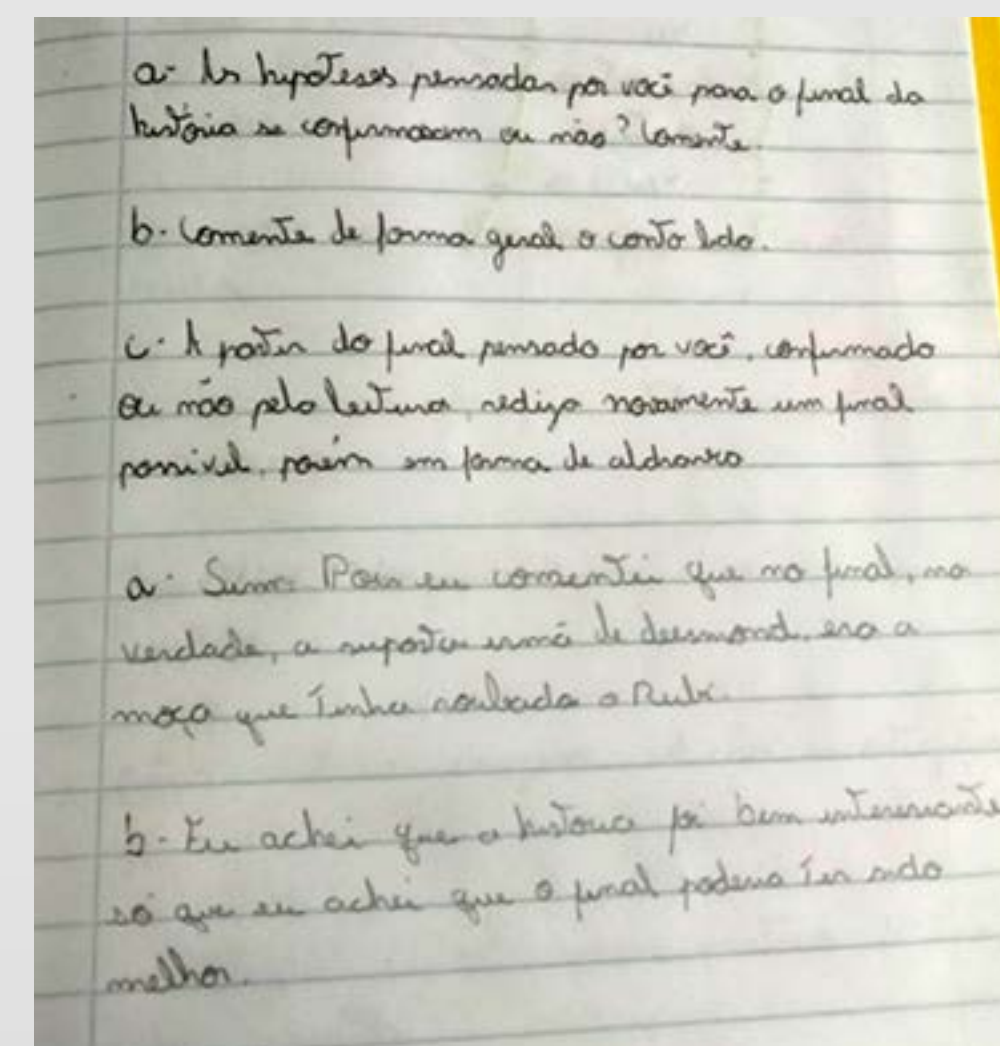 a- As hipoteses pensadas por você para o final da
história se confirmaram ou não? Comente.
b- Comente de forma geral o conto lido.
c- A partir do final pensado por você, confirmado
ou não pela leitura, rediga novamente um final
possível, porém em forma de
a- Sim. Pois eu comentei que no final, na
verdade, a suposta irmã de desmond, era a
moça que tinha roubado o Rubi.
b- Eu achei que a história foi bem interessante
só que eu achei que o final poderia ter sido
melhor.